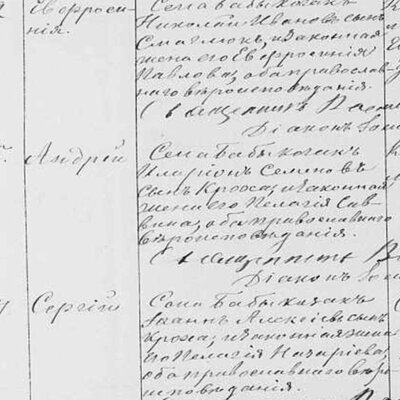 Евфроси-
нія.
Села Бабы козакъ
Николай Ивановъ сынъ
Смаглюкъ, и законная
жена его Евфросинія
Павлова, оба православ-
наго вѣроисповѣданія.
Священникъ
Діаконъ
Андрей
Села Бабы козакъ
Иларіонъ Семеновъ
сынъ Кроха, и законная
жена его Пелагія Сав-
вина, оба православнаго
вѣроисповѣданія.
Священникъ
Діаконъ
Сергій
Села Бабы козакъ
Іоаннъ Алексіевъ сынъ
Кроха, и законная жена
его Пелагія Назаріева,
оба православнаго вѣро-
исповѣданія.